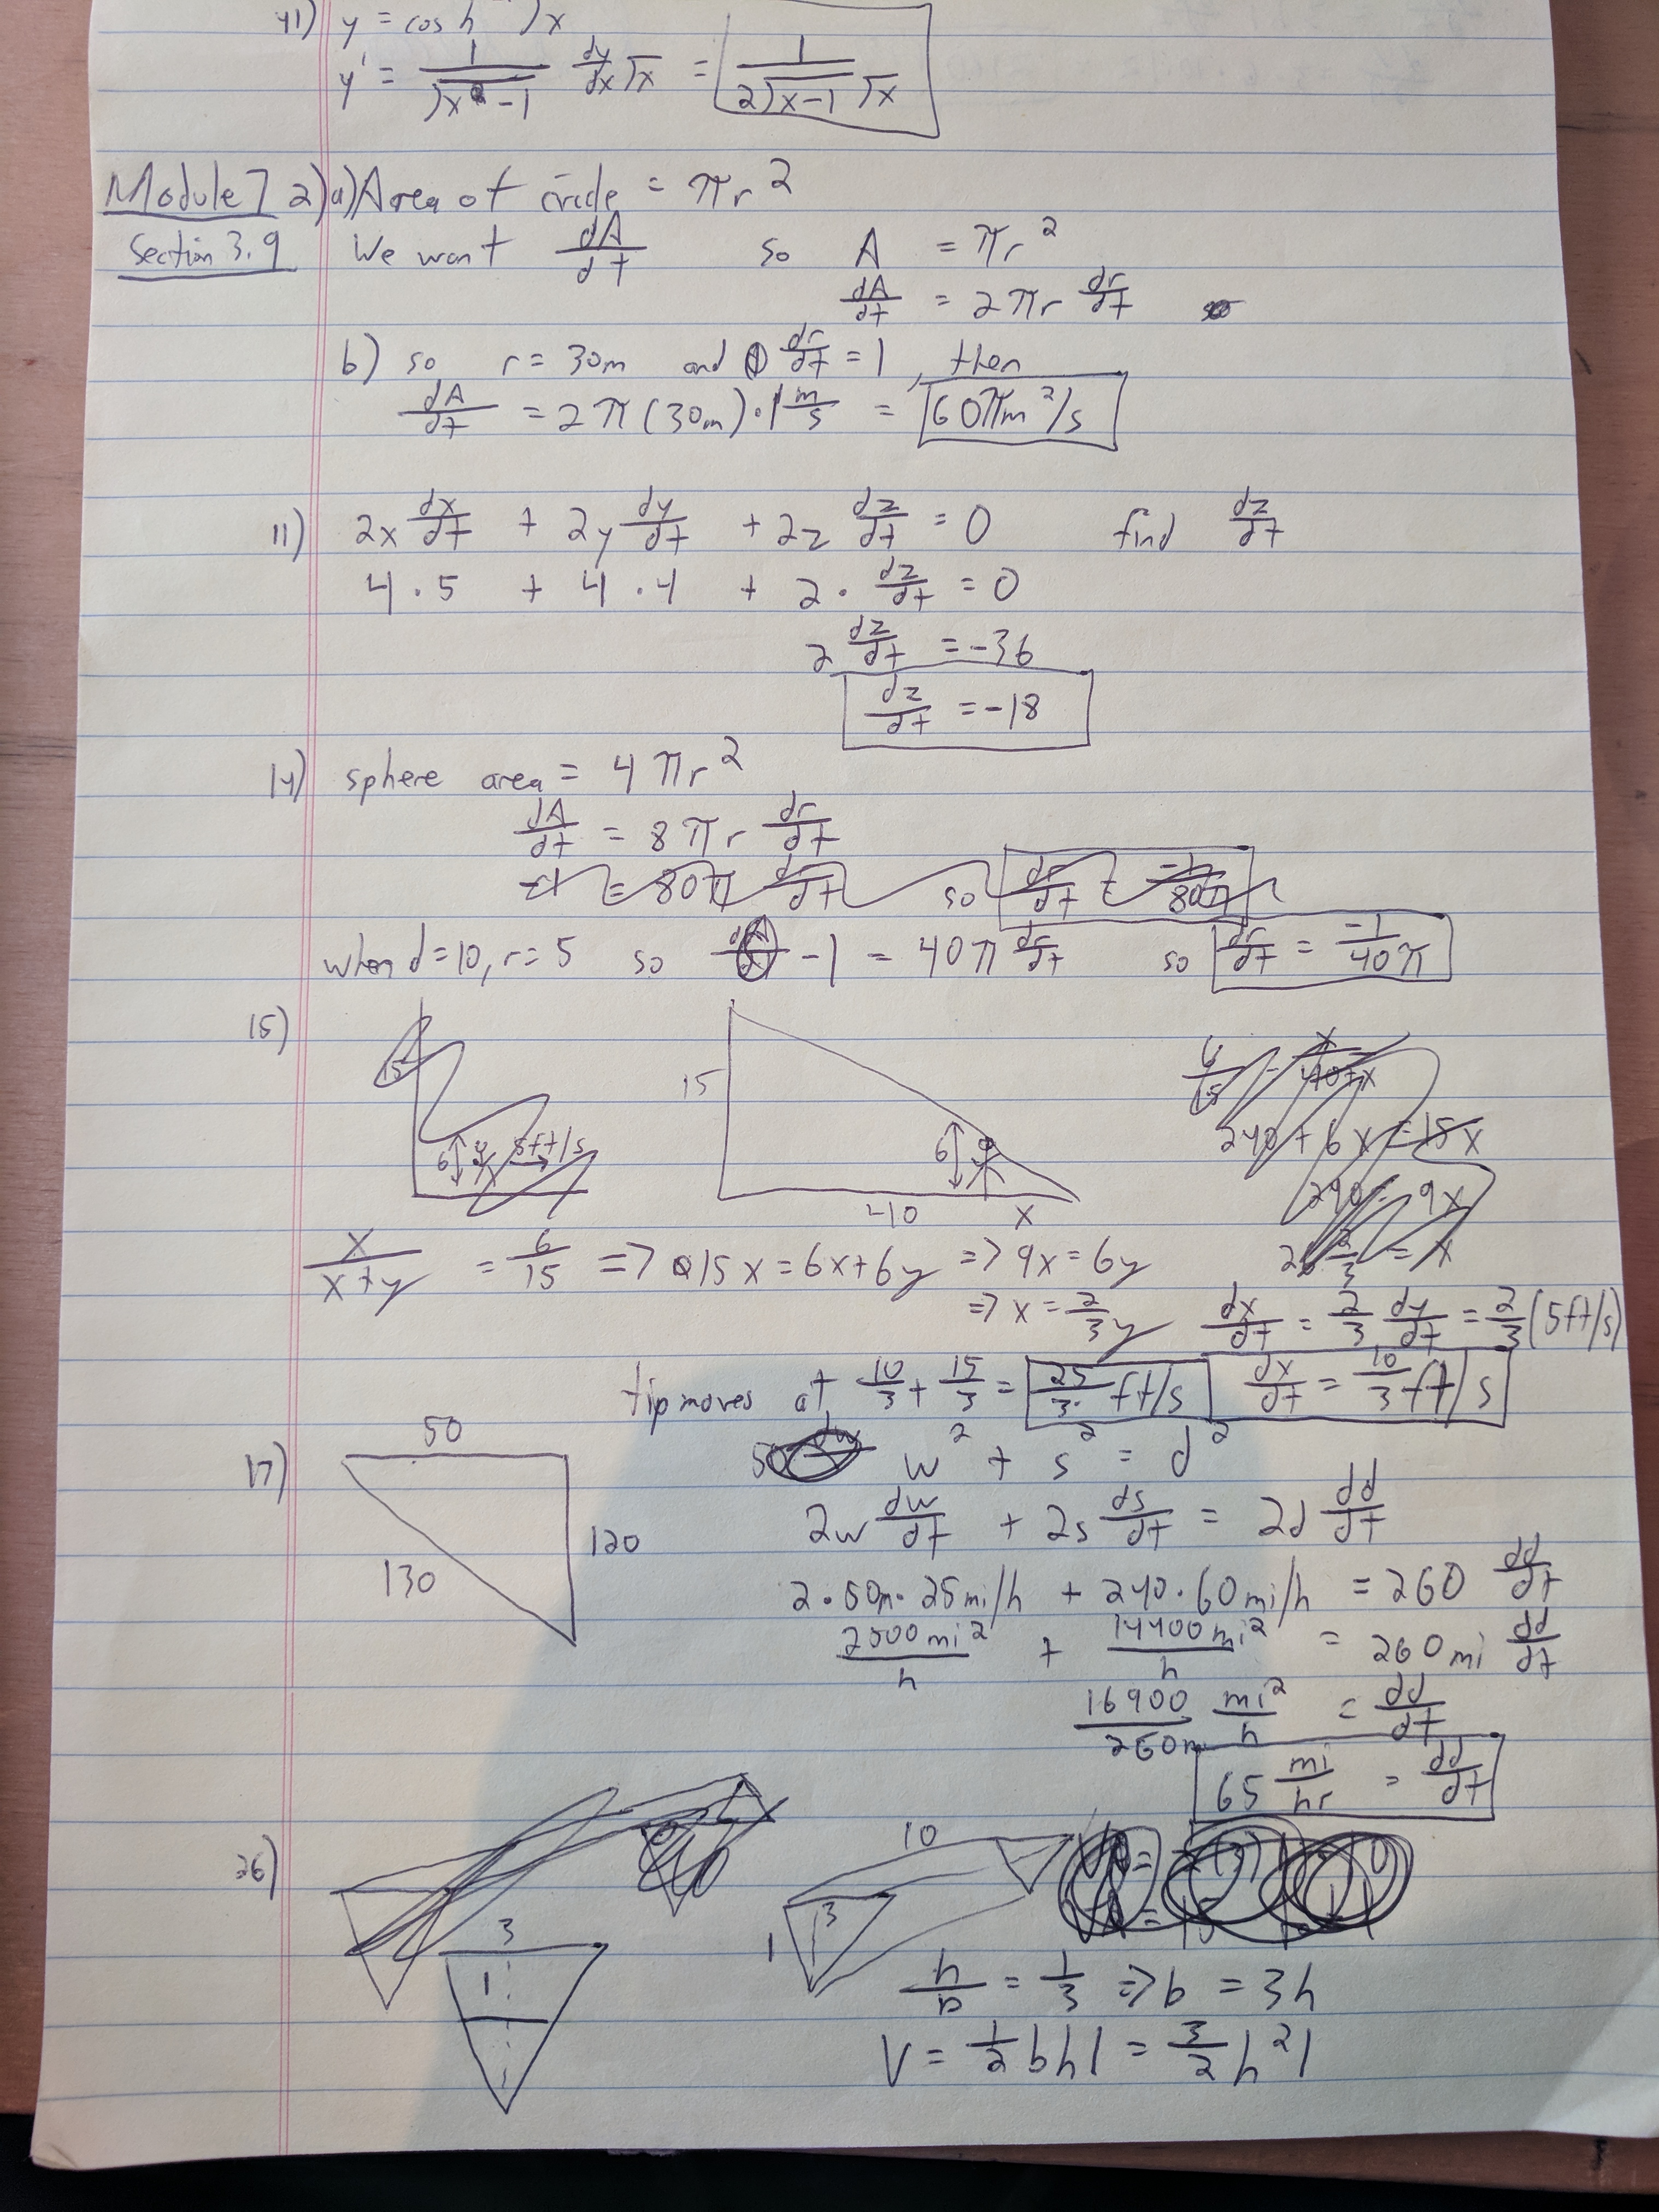 41) y = cosh⁻¹ √x
y' = 1/√(x-1) dy/dx √x = 1/(2√(x-1) √x)
Module 7 2)a) Area of circle = πr²
Section 3.9 We want dA/dt so A = πr²
dA/dt = 2πr dr/dt
b) so r = 30m and dr/dt = 1, then
dA/dt = 2π(30m)·1 m/s = 60πm²/s
11) 2x dx/dt + 2y dy/dt + 2z dz/dt = 0 find dz/dt
4·5 + 4·4 + 2· dz/dt = 0
2 dz/dt = -36
dz/dt = -18
14) sphere area = 4πr²
dA/dt = 8πr dr/dt
-1 = 80π dr/dt so dr/dt = -1/80π
when d=10, r=5 so -1 = 40π dr/dt so dr/dt = -1/40π
15)
15
6 5ft/s
15
6
40 x
6/15 = x/(40+x)
240 + 6x = 15x
240 = 9x
26 2/3 = x
x/(x+y) = 6/15 => 15x = 6x+6y => 9x = 6y
=> x = 2/3 y dx/dt = 2/3 dy/dt = 2/3 (5ft/s)
tip moves at 10/3 + 15/3 = 25/3 ft/s dx/dt = 10/3 ft/s
17) 50
120
130
w² + s² = d²
2w dw/dt + 2s ds/dt = 2d dd/dt
2·50m·25mi/h + 240·60mi/h = 260 dd/dt
2500mi²/h + 14400mi²/h = 260mi dd/dt
16900/260m mi²/h = dd/dt
65 mi/hr = dd/dt
26)
10
3
1
3
1
h/b = 1/3 => b = 3h
V = 1/2 bhl = 3/2 h²l